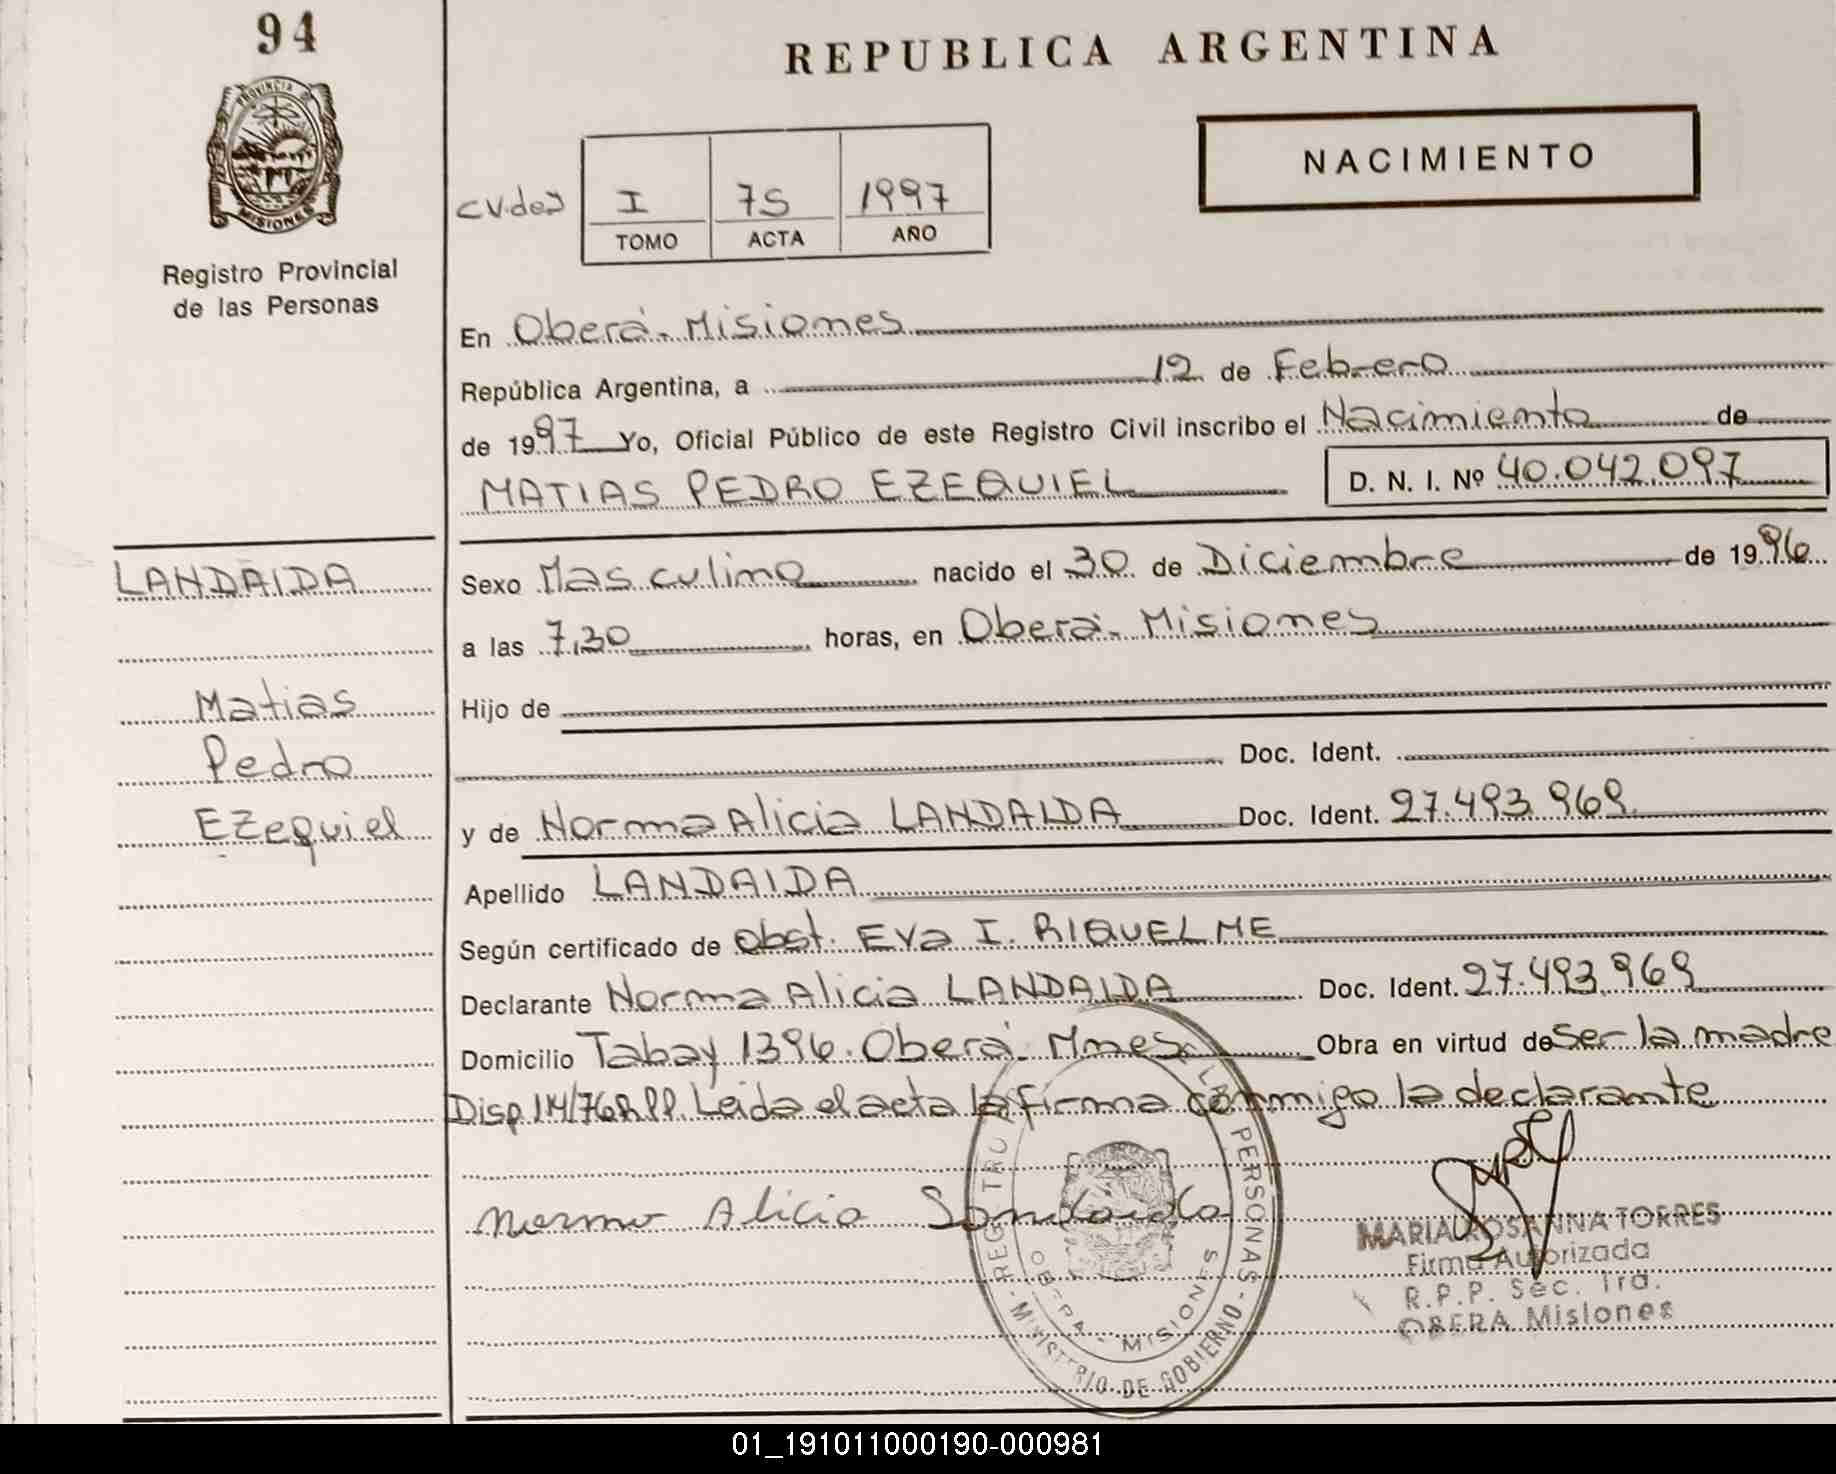 94
PROVINCIA DE
MISIONES
Registro Provincial
de las Personas
REPUBLICA ARGENTINA
NACIMIENTO
I 75 1997
TOMO ACTA AÑO
En Oberá-Misiones
República Argentina, a 12 de Febrero
de 1997 Yo, Oficial Público de este Registro Civil inscribo el Nacimiento de
MATIAS PEDRO EZEQUIEL D. N. I. Nº 40.042.097
LANDAIDA
Matias
Pedro
Ezequiel
Sexo Masculino nacido el 30 de Diciembre de 1996
a las 7,30 horas, en Oberá-Misiones
Hijo de
Doc. Ident.
y de Norma Alicia LANDAIDA Doc. Ident. 27.493.969
Apellido LANDAIDA
Según certificado de obst. Eva I. RIQUELME
Declarante Norma Alicia LANDAIDA Doc. Ident. 27.493.969
Domicilio Tabay 1396. Oberá-Mnes Obra en virtud de ser la madre
Disp 14/76 R.P.P. Leida el acta la firma conmigo la declarante
Norma Alicia Landaida
REGISTRO LAS PERSONAS - MINISTERIO DE GOBIERNO
OBERA - MISIONES
MARIA ROSANNA TORRES
Firma Autorizada
R.P.P. Sec. 1ra.
OBERA Misiones
01_191011000190-000981